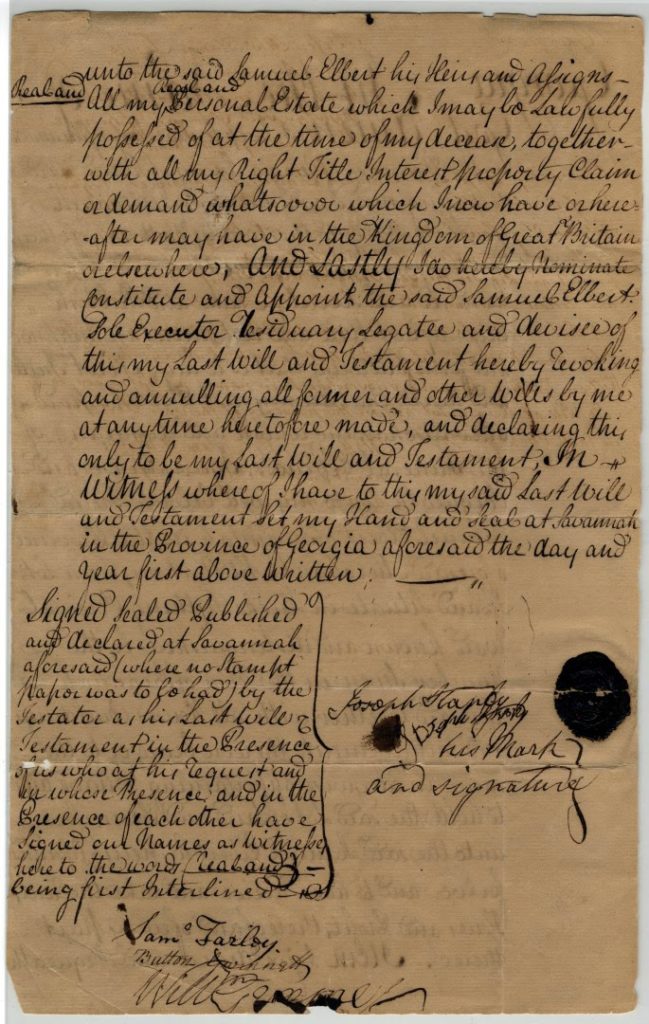 unto the said Samuel Elbert his Heirs and Assigns –
Real and
Real and
All my Personal Estate which I may be Lawfully
possessed of at the time of my decease, together
with all my Right Title Interest property Claim
or demand whatsoever which I now have or here-
-after may have in the Kingdom of Great Britain
or elsewhere, And Lastly I do hereby Nominate
Constitute and Appoint the said Samuel Elbert
Sole Executor Residuary Legatee and devisee of
this my Last Will and Testament hereby revoking
and annulling all former and other Wills by me
at any time heretofore made, and declaring this
only to be my Last Will and Testament, In
Witness where of I have to this my said Last Will
and Testament Set my Hand and Seal at Savannah
in the Province of Georgia aforesaid the day and
Year first above written.
Signed Sealed Published
and declared at Savannah
aforesaid (where no Stampt
paper was to be had) by the
Testater as his Last Will &
Testament in the Presence
of us who at his request and
in whose Presence, and in the
Presence of each other have
Signed our Names as Witnesses
here to the words (Real and)
being first Interlined
Joseph Stanly
his Mark
and signature
Sam.o Farley.
Button Gwinnett
Will